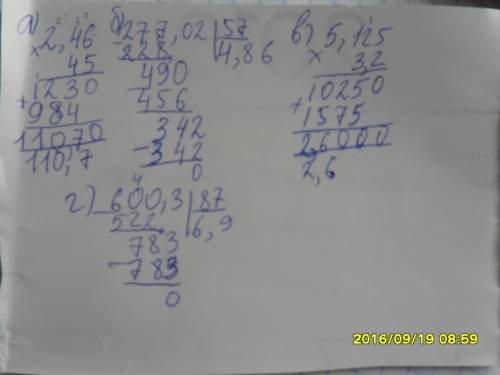 а) 2,46
× 45
1230
+ 984
11070
110,7
б) 277,02 | 57
- 228 | 4,86
490
- 456
342
- 342
0
в) 5,125
× 3,2
10250
+ 1575
26000
2,6
г) 600,3 | 87
- 522 | 6,9
783
- 783
0
2016/09/19 08:59